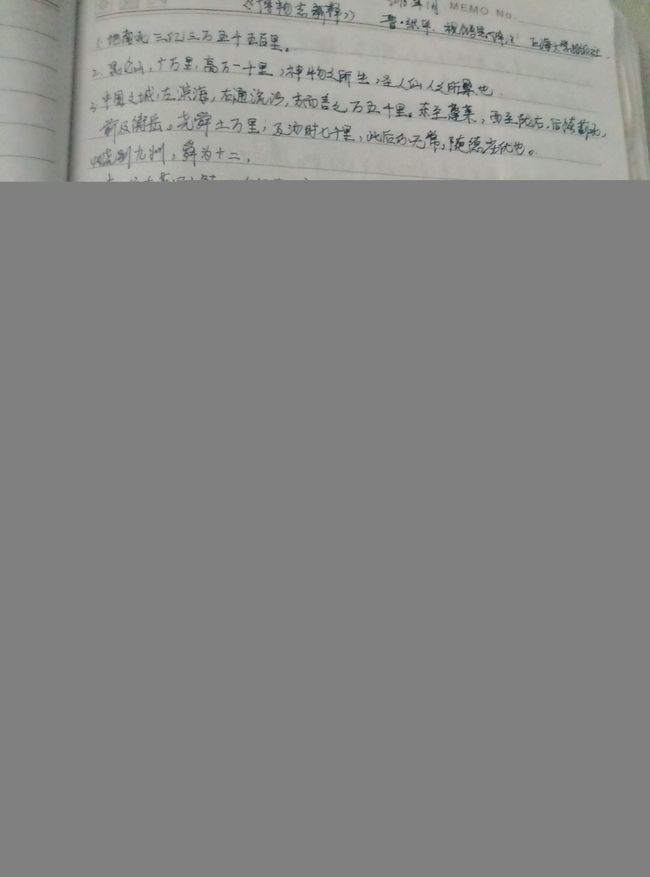 《博物志新释》 年 月 MEMO No.
晋·张华 上海大学出版社
1.地南北三亿三万五千五百里。
2.昆仑山,广万里,高万一千里,神物之所生,圣人仙人之所集也
3.中国之城,左滨海,右通流沙,方而言之万五千里。东至蓬莱,西至陇右,后
前及衡岳,尧舜土万里,及汤时七千里,此后亦无常,随德也。
尧别九州,舜为十二,